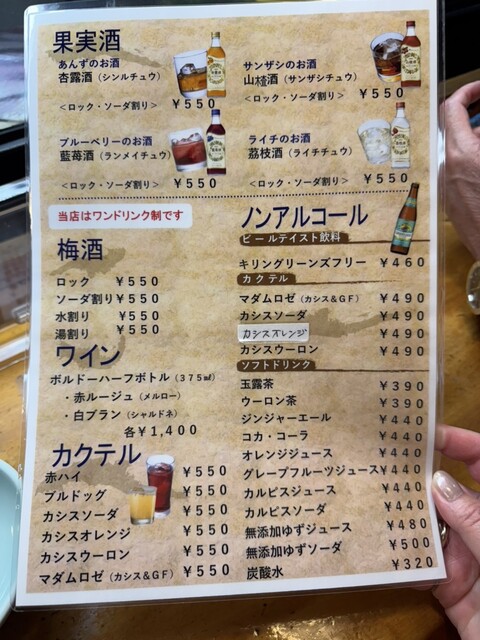 果実酒
あんずのお酒
杏露酒（シンルチュウ）
<ロック・ソーダ割り> ￥550
サンザシのお酒
山樝酒（サンザシチュウ）
<ロック・ソーダ割り> ￥550
ブルーベリーのお酒
藍苺酒（ランメイチュウ）
<ロック・ソーダ割り> ￥550
ライチのお酒
荔枝酒（ライチチュウ）
<ロック・ソーダ割り> ￥550
当店はワンドリンク制です
梅酒
ロック ￥550
ソーダ割り￥550
水割り ￥550
湯割り ￥550
ワイン
ボルドーハーフボトル（375㎖）
・赤ルージュ（メルロー）
・白ブラン（シャルドネ）
各￥1,400
カクテル
赤ハイ ￥550
ブルドッグ ￥550
カシスソーダ ￥550
カシスオレンジ ￥550
カシスウーロン ￥550
マダムロゼ（カシス＆GF） ￥550
ノンアルコール
ビールテイスト飲料
キリングリーンズフリー ￥460
カクテル
マダムロゼ（カシス＆GF） ￥490
カシスソーダ ￥490
カシスオレンジ ￥490
カシスウーロン ￥490
ソフトドリンク
玉露茶 ￥390
ウーロン茶 ￥390
ジンジャーエール ￥440
コカ・コーラ ￥440
オレンジジュース ￥440
グレープフルーツジュース￥440
カルピスジュース ￥440
カルピスソーダ ￥440
無添加ゆずジュース ￥480
無添加ゆずソーダ ￥500
炭酸水 ￥320